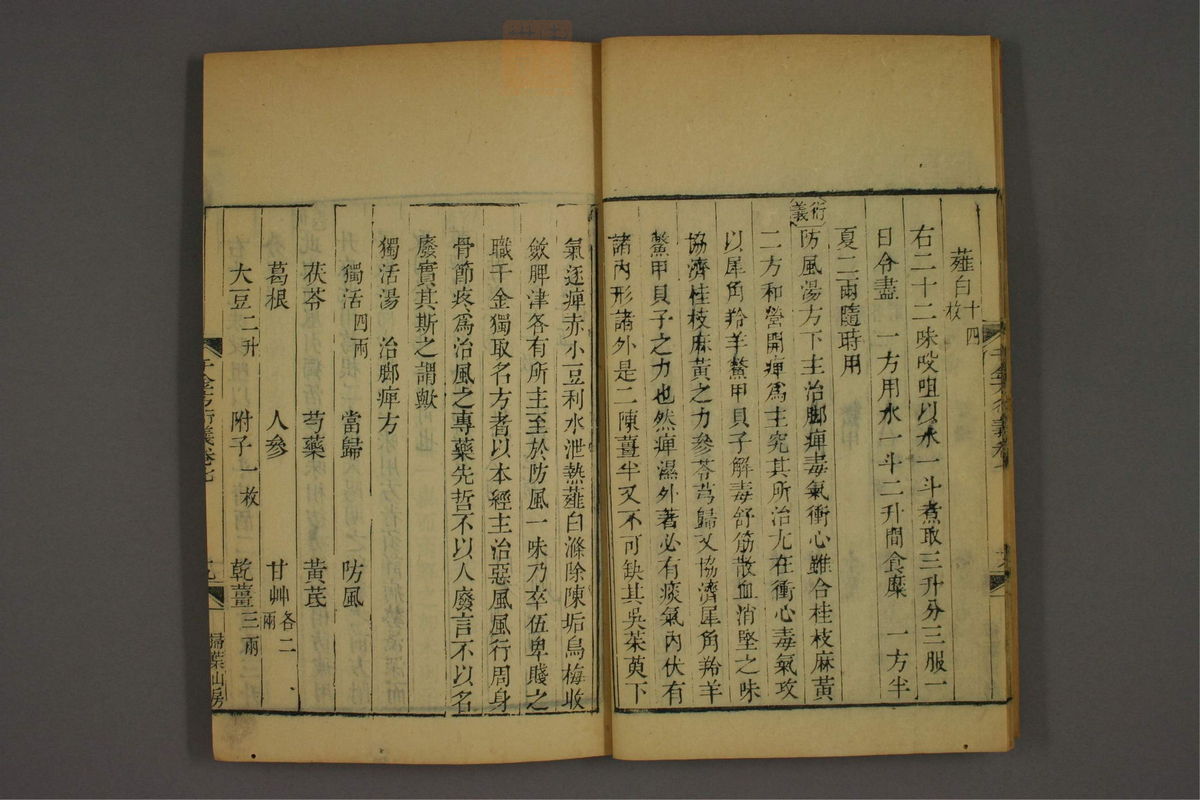 薤白十四枚
右二十二味㕮咀以水一斗煮取三升分三服一
日令盡　一方用水一斗二升間食糜　一方半
夏二兩隨時用
衍義
防風湯方下主治脚痺毒氣衝心雖合桂枝麻黃
二方和營開痺爲主究其所治尢在衝心毒氣攻
以犀角羚羊鱉甲貝子解毒舒筋散血消堅之味
協濟桂枝麻黃之力參苓芎歸又協濟犀角羚羊
鱉甲貝子之力也然痺濕外著必有痰氣內伏有
諸內形諸外是二陳薑半又不可缺其吳茱萸下
氣逐痺赤小豆利水泄熱薤白滌除陳垢烏梅收
斂脾津各有所主至於防風一味乃卒伍卑賤之
職千金獨取名方者以本經主治惡風風行周身
骨節疼爲治風之專藥先哲不以人廢言不以名
廢實其斯之謂歟
獨活湯　治脚痺方
獨活四兩　當歸　防風
茯苓　芍藥　黃芪
葛根　人參　甘艸各二兩
大豆二升　附子一枚　乾薑三兩
千金方衍義卷七
九
掃葉山房